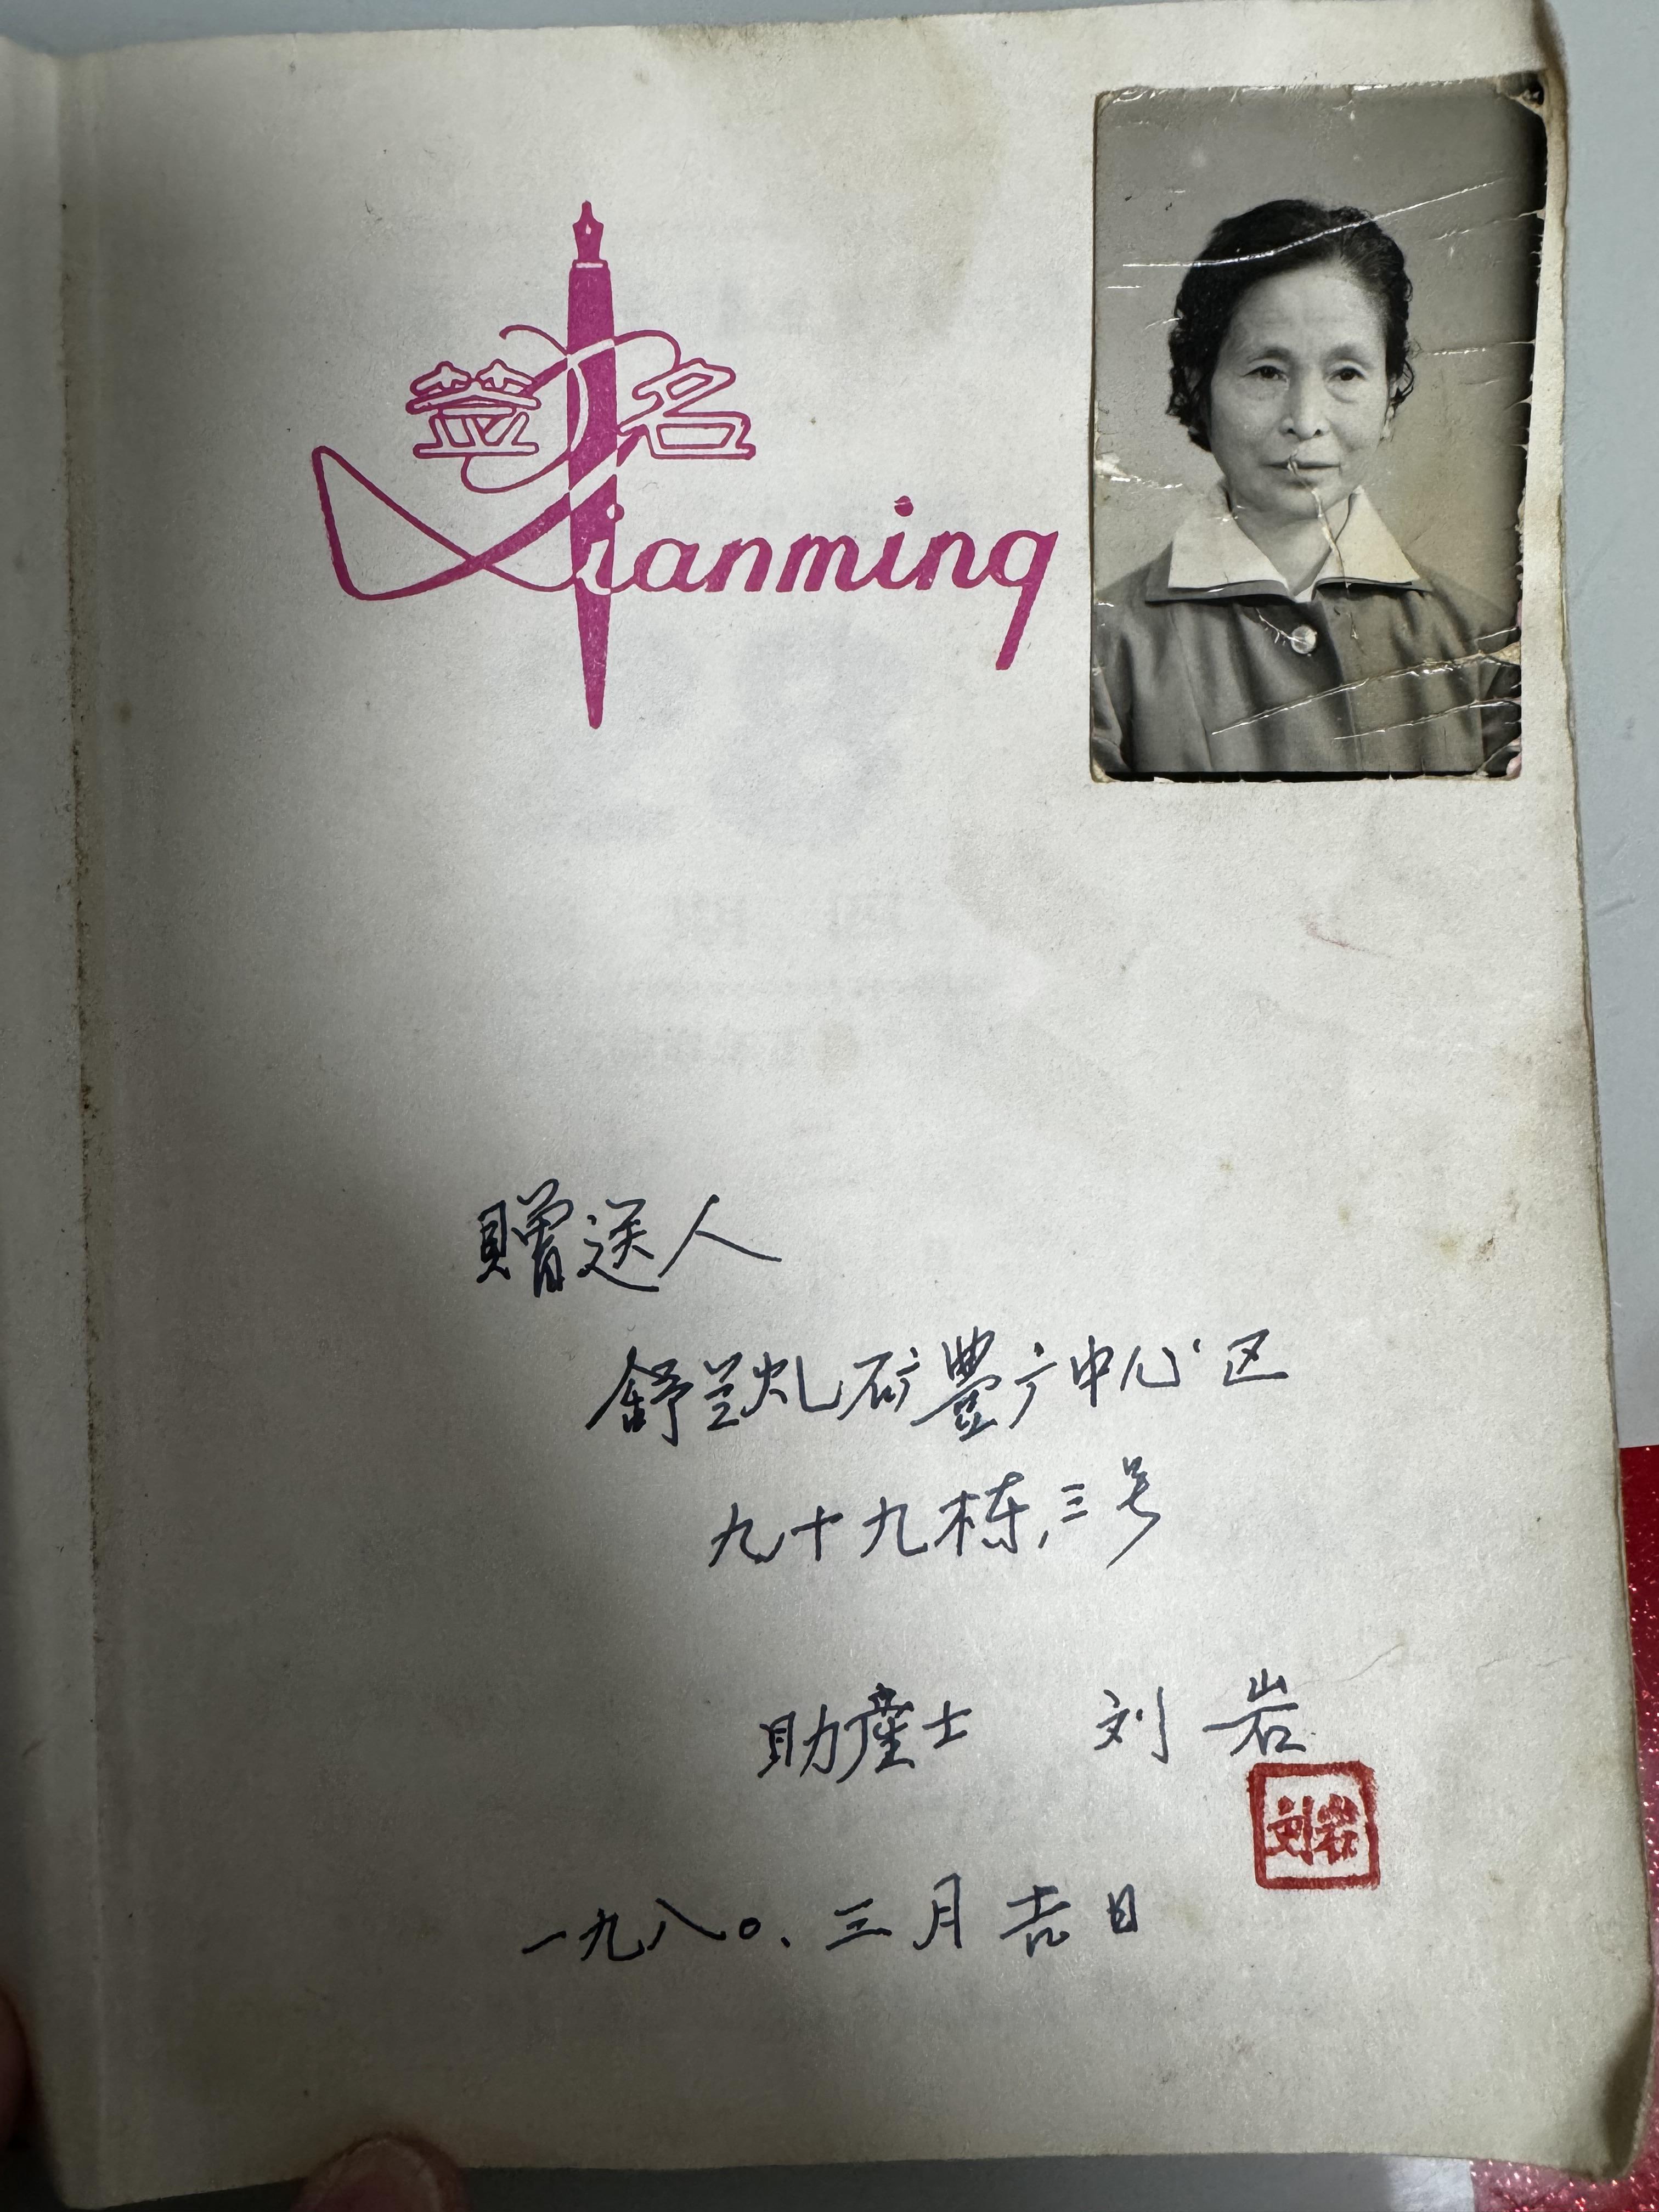 签名
Qianming
赠送人
舒兰矿豊广中心区
九十九栋,三号
助產士 刘岩
刘岩
一九八〇.三月吉日